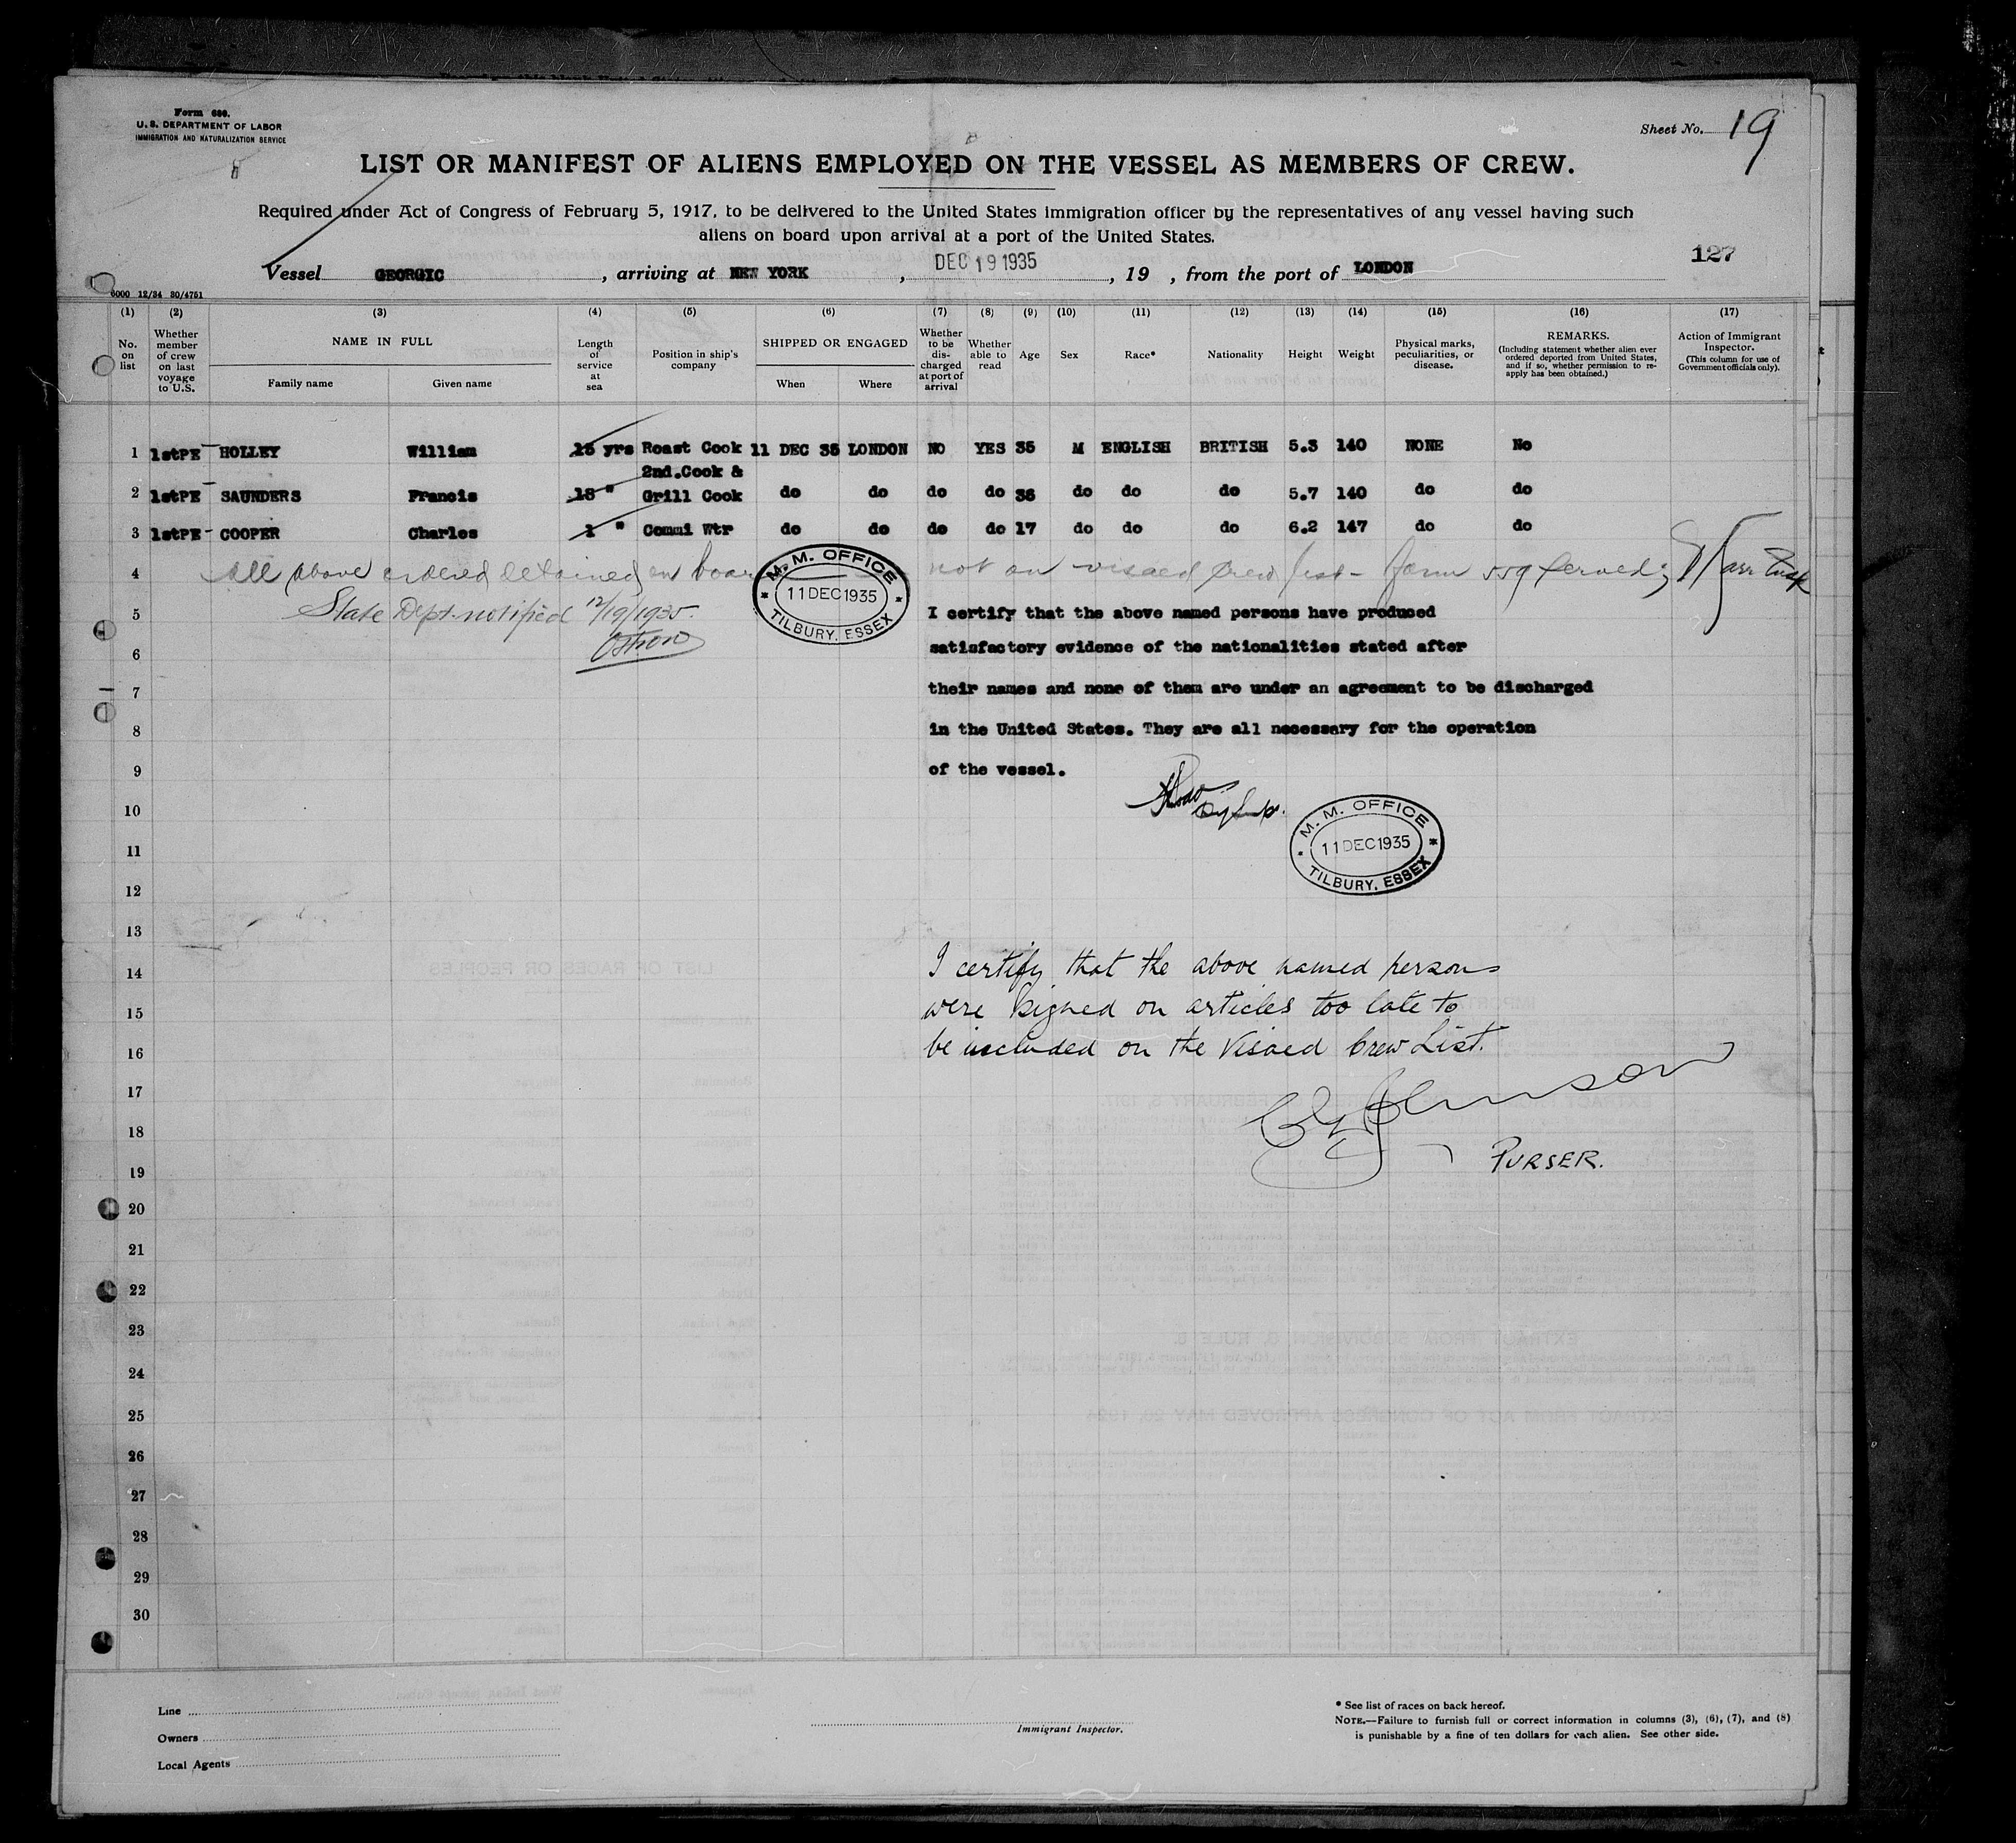 Form 680.
U. S. DEPARTMENT OF LABOR
IMMIGRATION AND NATURALIZATION SERVICE
Sheet No. 19
LIST OR MANIFEST OF ALIENS EMPLOYED ON THE VESSEL AS MEMBERS OF CREW.
Required under Act of Congress of February 5, 1917, to be delivered to the United States immigration officer by the representatives of any vessel having such
aliens on board upon arrival at a port of the United States.
127
Vessel GEORGIC, arriving at NEW YORK, DEC 19 1935, 19 , from the port of LONDON
6000 12/34 30/4751
(1) (2) (3) (4) (5) (6) (7) (8) (9) (10) (11) (12) (13) (14) (15) (16) (17)
No. on list
Whether member of crew on last voyage to U.S.
NAME IN FULL
Family name
Given name
Length of service at sea
Position in ship's company
SHIPPED OR ENGAGED
When
Where
Whether to be discharged at port of arrival
Whether able to read
Age
Sex
Race*
Nationality
Height
Weight
Physical marks, peculiarities, or disease.
REMARKS.
(Including statement whether alien ever ordered deported from United States, and if so, whether permission to reapply has been obtained.)
Action of Immigrant Inspector.
(This column for use of Government officials only).
1 1stPE HOLLEY William 15 yrs Roast Cook 11 DEC 35 LONDON NO YES 35 M ENGLISH BRITISH 5.3 140 NONE No
2nd.Cook &
2 1stPE SAUNDERS Francis 18 " Grill Cook do do do do 36 do do do 5.7 140 do do
3 1stPE COOPER Charles 1 " Commi Wtr do do do do 17 do do do 6.2 147 do do
4 All above ordered detained on board not on visaed crew list - form 559 served;
M. M. OFFICE
11 DEC 1935
TILBURY, ESSEX
5 State Dept. notified 12/19/1935. I certify that the above named persons have produced
6 satisfactory evidence of the nationalities stated after
7 their names and none of them are under an agreement to be discharged
8 in the United States. They are all necessary for the operation
9 of the vessel.
10
M. M. OFFICE
11 DEC 1935
TILBURY, ESSEX
11
12
13
14 I certify that the above named persons
15 were signed on articles too late to
16 be included on the Visaed Crew List.
17
18
19 PURSER.
20
21
22
23
24
25
26
27
28
29
30
Line
Owners
Local Agents
Immigrant Inspector.
* See list of races on back hereof.
NOTE.—Failure to furnish full or correct information in columns (3), (6), (7), and (8)
is punishable by a fine of ten dollars for each alien. See other side.